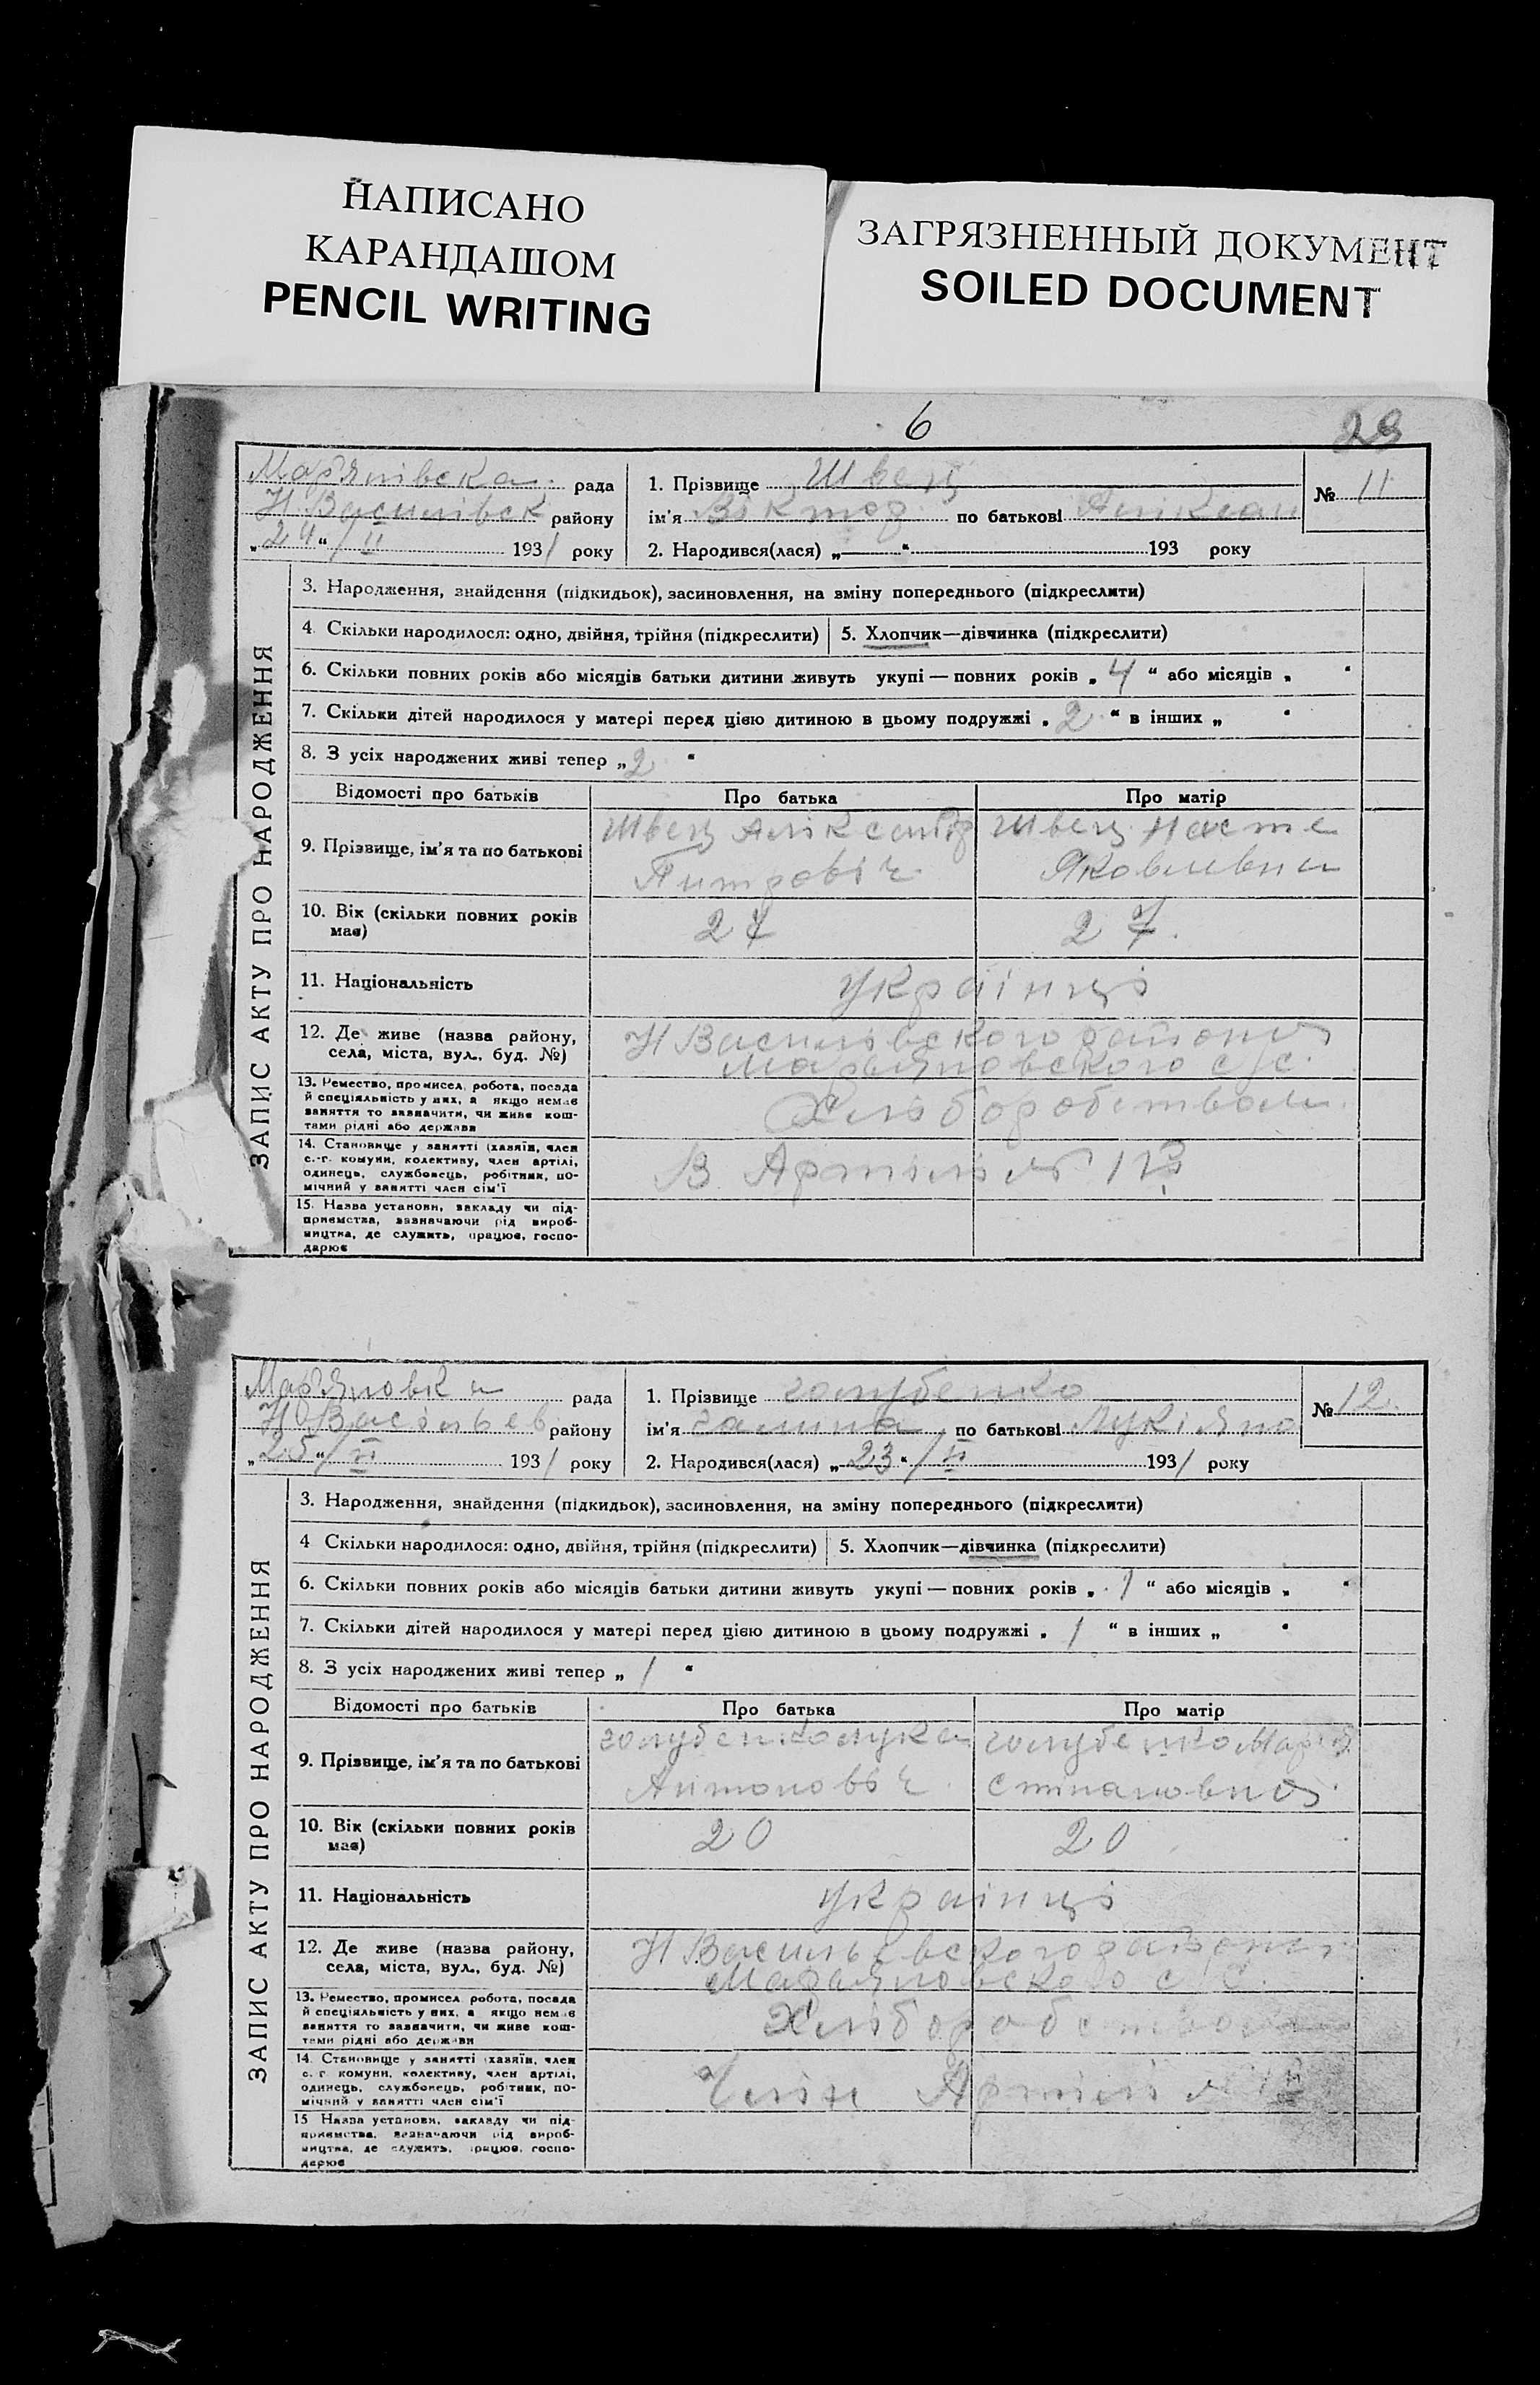 НАПИСАНО
КАРАНДАШОМ
PENCIL WRITING
ЗАГРЯЗНЕННЫЙ ДОКУМЕНТ
SOILED DOCUMENT
6
ЗАПИС АКТУ ПРО НАРОДЖЕННЯ
Мар'янівска рада
Н Василівск району
„24“/II 1931 року
1. Прізвище Швец
ім'я Віктор по батькові Аліксан
№ 11
2. Народився(лася) „ “ 193 року
3. Народження, знайдення (підкидьок), засиновлення, на зміну попереднього (підкреслити)
4. Скільки народилося: одно, двійня, трійня (підкреслити) 5. Хлопчик—дівчинка (підкреслити)
6. Скільки повних років або місяців батьки дитини живуть укупі — повних років „ 4 “ або місяців „ “
7. Скільки дітей народилося у матері перед цією дитиною в цьому подружжі „ 2 “ в інших „ “
8. З усіх народжених живі тепер „ 2 “
Відомості про батьків Про батька Про матір
9. Прізвище, ім'я та по батькові
Швец Швец Настя
Питровіч Яковлевна
10. Вік (скільки повних років має) 27
11. Національність Українці
12. Де живе (назва району, села, міста, вул., буд. №)
Н Василівского району
Марьяновского с/с.
13. Ремество, промисел, робота, посада
й спеціяльність у них, а якщо немає
заняття то зазначити, чи живе кош-
тами рідні або держави
Хліборобством.
14. Становище у занятті (хазяїн, член
с.-г. комуни, колективу, член артілі,
одинець, службовець, робітник, по-
мічний у занятті член сім'ї
В Артілі №
15. Назва установи, закладу чи під-
приємства, зазначаючи рід вироб-
ництва, де служить, працює, госпо-
дарює
ЗАПИС АКТУ ПРО НАРОДЖЕННЯ
Мар'яновка рада
Н Васільев району
„25“/II 1931 року
1. Прізвище голубенко
ім'я галина по батькові Лукіяно
№ 12.
2. Народився(лася) „23“/II 1931 року
3. Народження, знайдення (підкидьок), засиновлення, на зміну попереднього (підкреслити)
4 Скільки народилося: одно, двійня, трійня (підкреслити) 5. Хлопчик—дівчинка (підкреслити)
6. Скільки повних років або місяців батьки дитини живуть укупі — повних років „ 1 “ або місяців „ “
7. Скільки дітей народилося у матері перед цією дитиною в цьому подружжі „ 1 “ в інших „ “
8. З усіх народжених живі тепер „ 1 “
Відомості про батьків Про батька Про матір
9. Прізвище, ім'я та по батькові
голубенко голубенко Марія
Антоновіч Стипановна
10. Вік (скільки повних років має) 20 20
11. Національність Українці
12. Де живе (назва району, села, міста, вул., буд. №)
Н Васильевского району
Марьяновского с/с.
13. Ремество, промисел, робота, посада
й спеціяльність у них, а якщо немає
заняття то зазначити, чи живе кош-
тами рідні або держави
Хліборобством
14. Становище у занятті (хазяїн, член
с. г. комуни, колективу, член артілі,
одинець, службовець, робітник, по-
мічний у занятті член сім'ї
Член Артілі №
15 Назва установи, закладу чи під-
приємства, зазначаючи рід вироб-
ництва, де служить, працює, госпо-
дарює